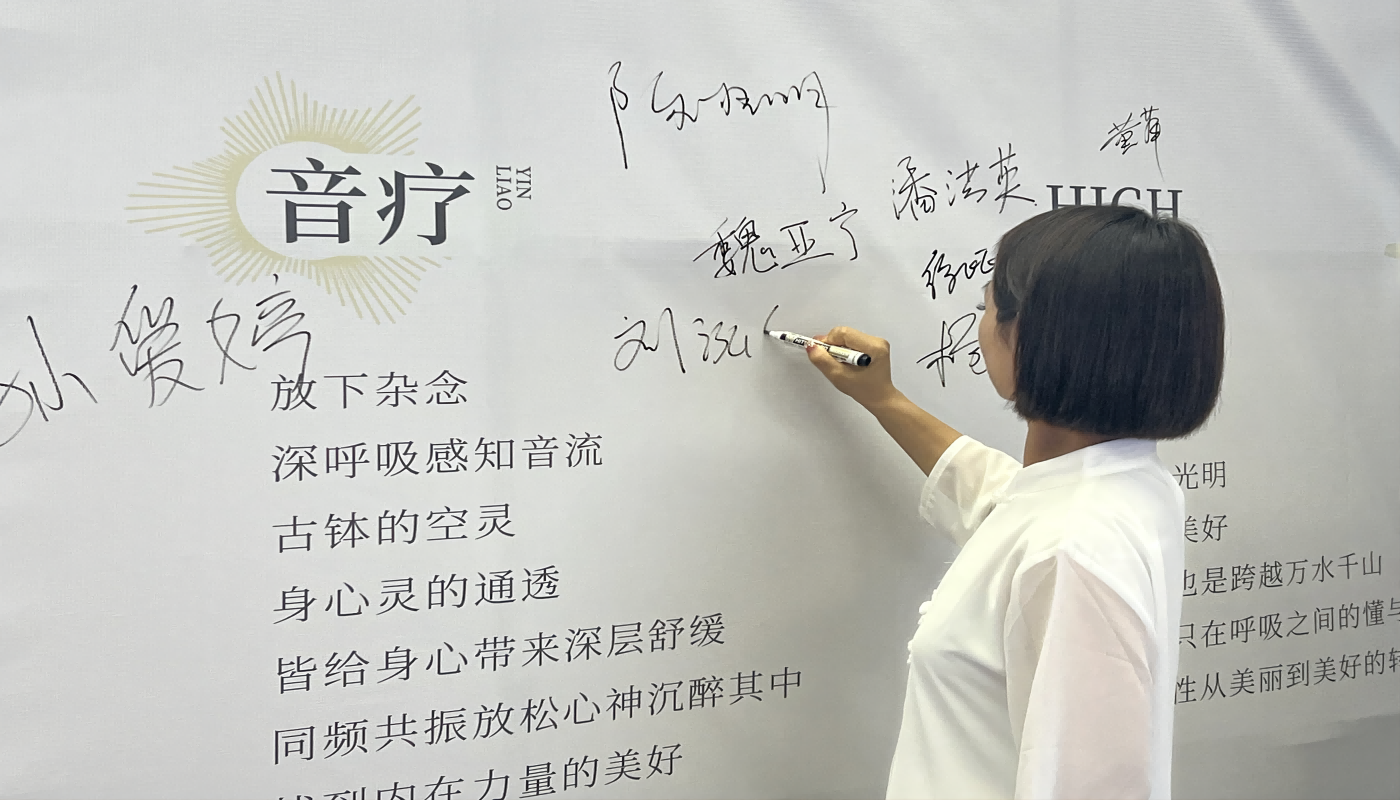 音疗
YIN
LIAO
HIGH
潘洁英
魏亚宁
刘泓
孙爱婷
放下杂念
深呼吸感知音流
古钵的空灵
身心灵的通透
皆给身心带来深层舒缓
同频共振放松心神沉醉其中
找到内在力量的美好
光明
美好
也是跨越万水千山
只在呼吸之间的懂与
性从美丽到美好的转